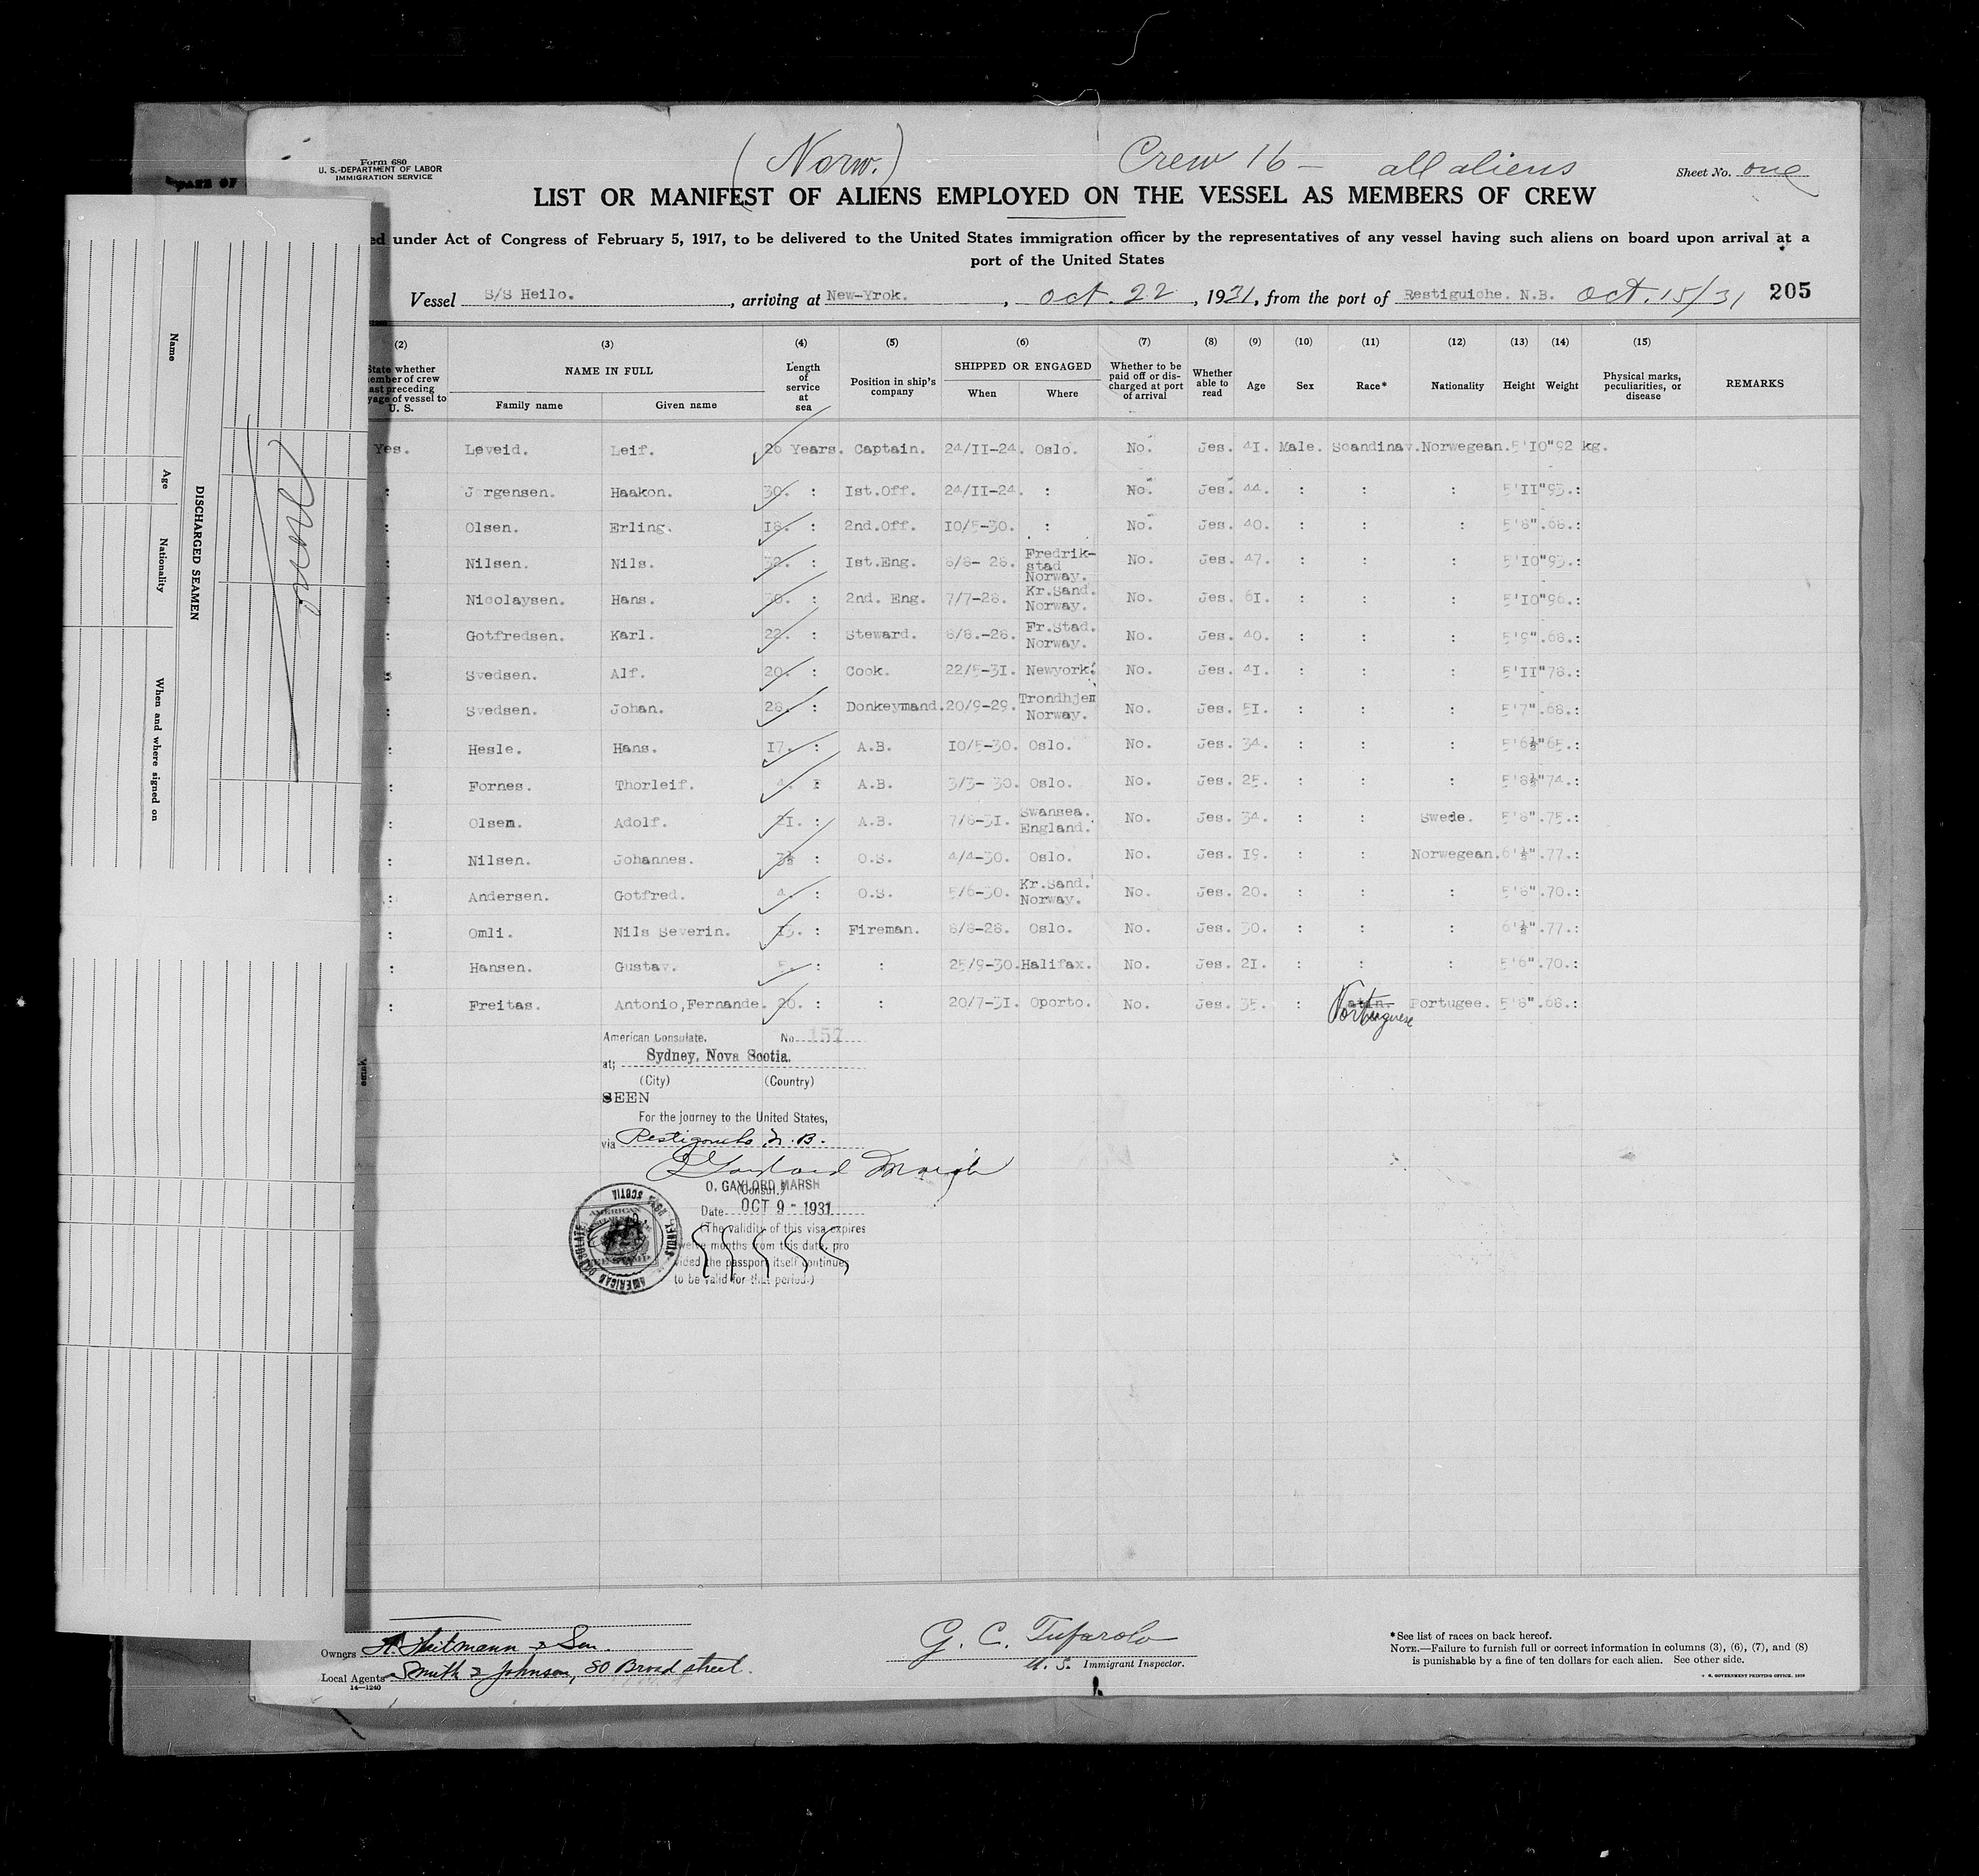 (Norw.) Crew 16 - all aliens
Form 680
U. S. DEPARTMENT OF LABOR
IMMIGRATION SERVICE
Sheet No. one
LIST OR MANIFEST OF ALIENS EMPLOYED ON THE VESSEL AS MEMBERS OF CREW
ed under Act of Congress of February 5, 1917, to be delivered to the United States immigration officer by the representatives of any vessel having such aliens on board upon arrival at a
port of the United States
Vessel S/S Heilo. , arriving at New-Yrok. , Oct. 22 , 1931, from the port of Restiguiche. N.B. Oct. 15/31 205
(2) (3) (4) (5) (6) (7) (8) (9) (10) (11) (12) (13) (14) (15)
State whether member of crew last preceding voyage of vessel to U. S.
NAME IN FULL
Family name Given name
Length of service at sea
Position in ship's company
SHIPPED OR ENGAGED
When Where
Whether to be paid off or discharged at port of arrival
Whether able to read
Age Sex Race* Nationality Height Weight
Physical marks, peculiarities, or disease
REMARKS
Yes. Løveid. Leif. 26 Years. Captain. 24/II-24. Oslo. No. Jes. 4I. Male. Scandinav. Norwegean. 5'IO" 92 kg.
: Jørgensen. Haakon. 30. : Ist.Off. 24/II-24. : No. Jes. 44. : : : 5'II" 93.:
: Olsen. Erling. I8. : 2nd.Off. IO/5-30. : No. Jes. 40. : : : 5'8". 68.:
: Nilsen. Nils. 32. : Ist.Eng. 8/8- 28. Fredrik-stad Norway. No. Jes. 47. : : : 5'IO" 93.:
: Nicolaysen. Hans. 30. : 2nd. Eng. 7/7-28. Kr.Sand. Norway. No. Jes. 6I. : : : 5'IO" 96.:
: Gotfredsen. Karl. 22. : Steward. 8/8.-28. Fr.Stad. Norway. No. Jes. 40. : : : 5'9". 68.:
: Svedsen. Alf. 20. : Cook. 22/5-3I. Newyork. No. Jes. 4I. : : : 5'II" 78.:
: Svedsen. Johan. 28. : Donkeymand. 20/9-29. Trondhjem Norway. No. Jes. 5I. : : : 5'7". 68.:
: Hesle. Hans. I7. : A.B. IO/5-30. Oslo. No. Jes. 34. : : : 5'6½" 65.:
: Fornes. Thorleif. 4. : A.B. 3/3- 30. Oslo. No. Jes. 25. : : : 5'8½" 74.:
: Olsen. Adolf. 2I. : A.B. 7/8-3I. Swansea. England. No. Jes. 34. : : Swede. 5'8". 75.:
: Nilsen. Johannes. 3½ : O.S. 4/4-30. Oslo. No. Jes. I9. : : Norwegean. 6'½". 77.:
: Andersen. Gotfred. 4. : O.S. 5/6-30. Kr.Sand. Norway. No. Jes. 20. : : : 5'8". 70.:
: Omli. Nils Severin. I3. : Fireman. 8/8-28. Oslo. No. Jes. 30. : : : 6'½". 77.:
: Hansen. Gustav. 5. : : 25/9-30. Halifax. No. Jes. 2I. : : : 5'6". 70.:
: Freitas. Antonio,Fernande. 20. : : 20/7-3I. Oporto. No. Jes. 35. : Portuguese Portugee. 5'8". 68.:
American Consulate. No. 157
at; Sydney, Nova Scotia.
(City) (Country)
SEEN
For the journey to the United States,
via Restigouche N.B.
O Gaylord Marsh
O. GAYLORD MARSH
(Consul.)
Date OCT 9 - 1931
(The validity of this visa expires
twelve months from this date, pro
vided the passport itself continues
to be valid for that period.)
Owners H. Heitmann & Son.
Local Agents Smith & Johnson, 80 Broad street.
14-1240
G. C. Tufarolo
U. S. Immigrant Inspector.
*See list of races on back hereof.
NOTE.—Failure to furnish full or correct information in columns (3), (6), (7), and (8)
is punishable by a fine of ten dollars for each alien. See other side.
DISCHARGED SEAMEN
Name
Age
Nationality
When and where signed on
None
Name